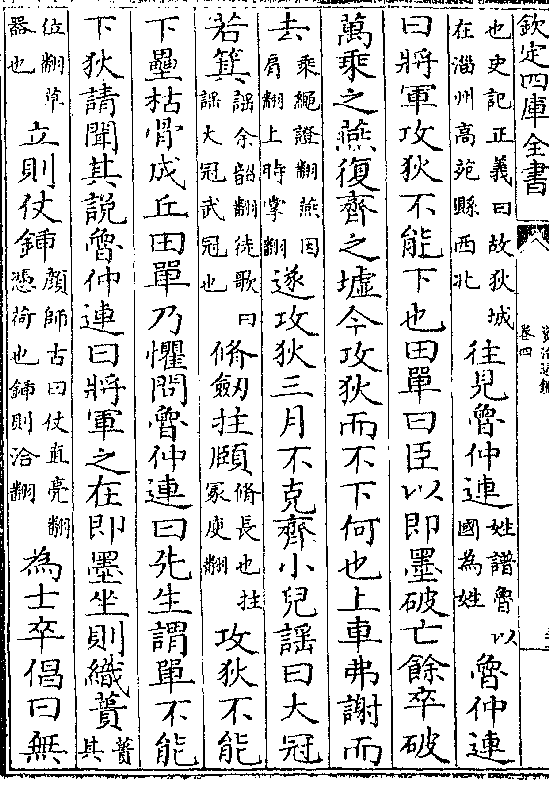 欽定四庫全書
資治通鑑
卷四
也史記正義曰故狄城在淄州高苑縣西北往見魯仲連姓譜魯以國為姓魯仲連
曰將軍攻狄不能下也田單曰臣以即墨破亡餘卒破
萬乘之燕復齊之墟今攻狄而不下何也上車弗謝而
去乘繩證翻燕因肩翻上時掌翻遂攻狄三月不克齊小兒謡曰大冠
若箕謡余韶翻徒歌曰謡大冠武冠也脩劒拄頤脩長也拄冢庾翻攻狄不能
下壘枯骨成丘田單乃懼問魯仲連曰先生謂單不能
下狄請聞其說魯仲連曰將軍之在即墨坐則織蕢蕢其
位翻草器也立則仗鍤顔師古曰仗直亮翻憑荷也鍤則洽翻為士卒倡曰無